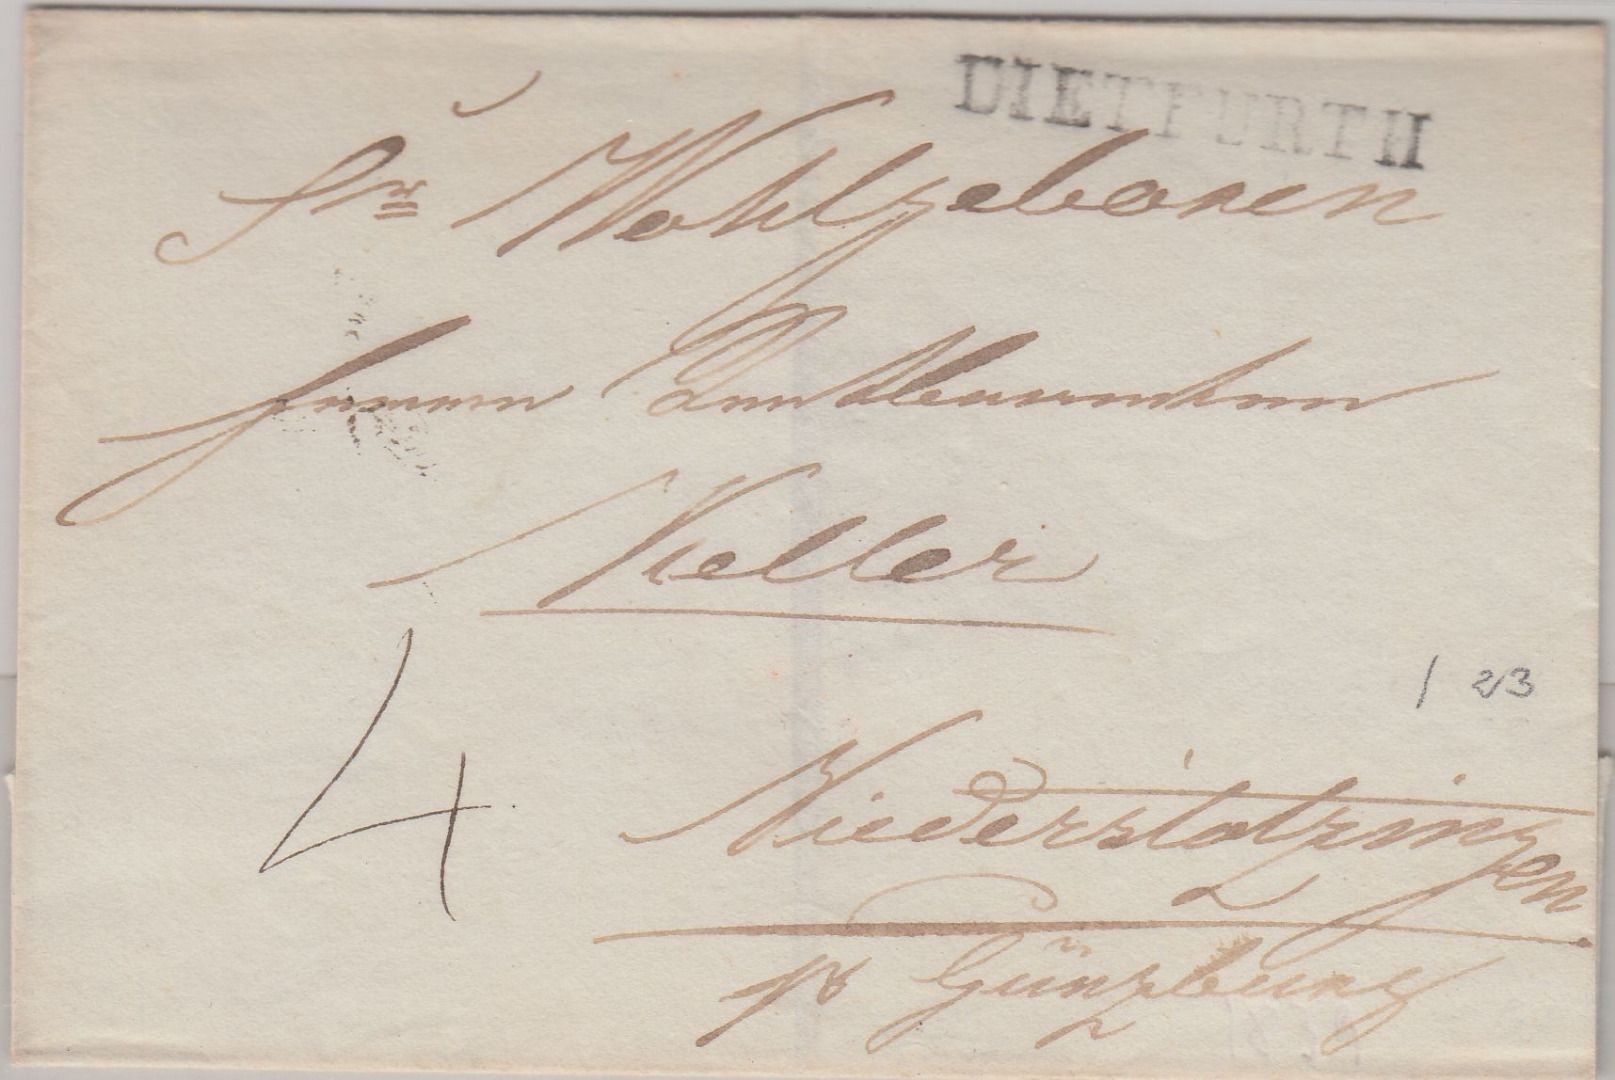 DIETFURTH
Sr Wohlgeboren
Herrn Rentbeamten
Keller
4
/ 23
Niederstotzingen
pr Günzburg